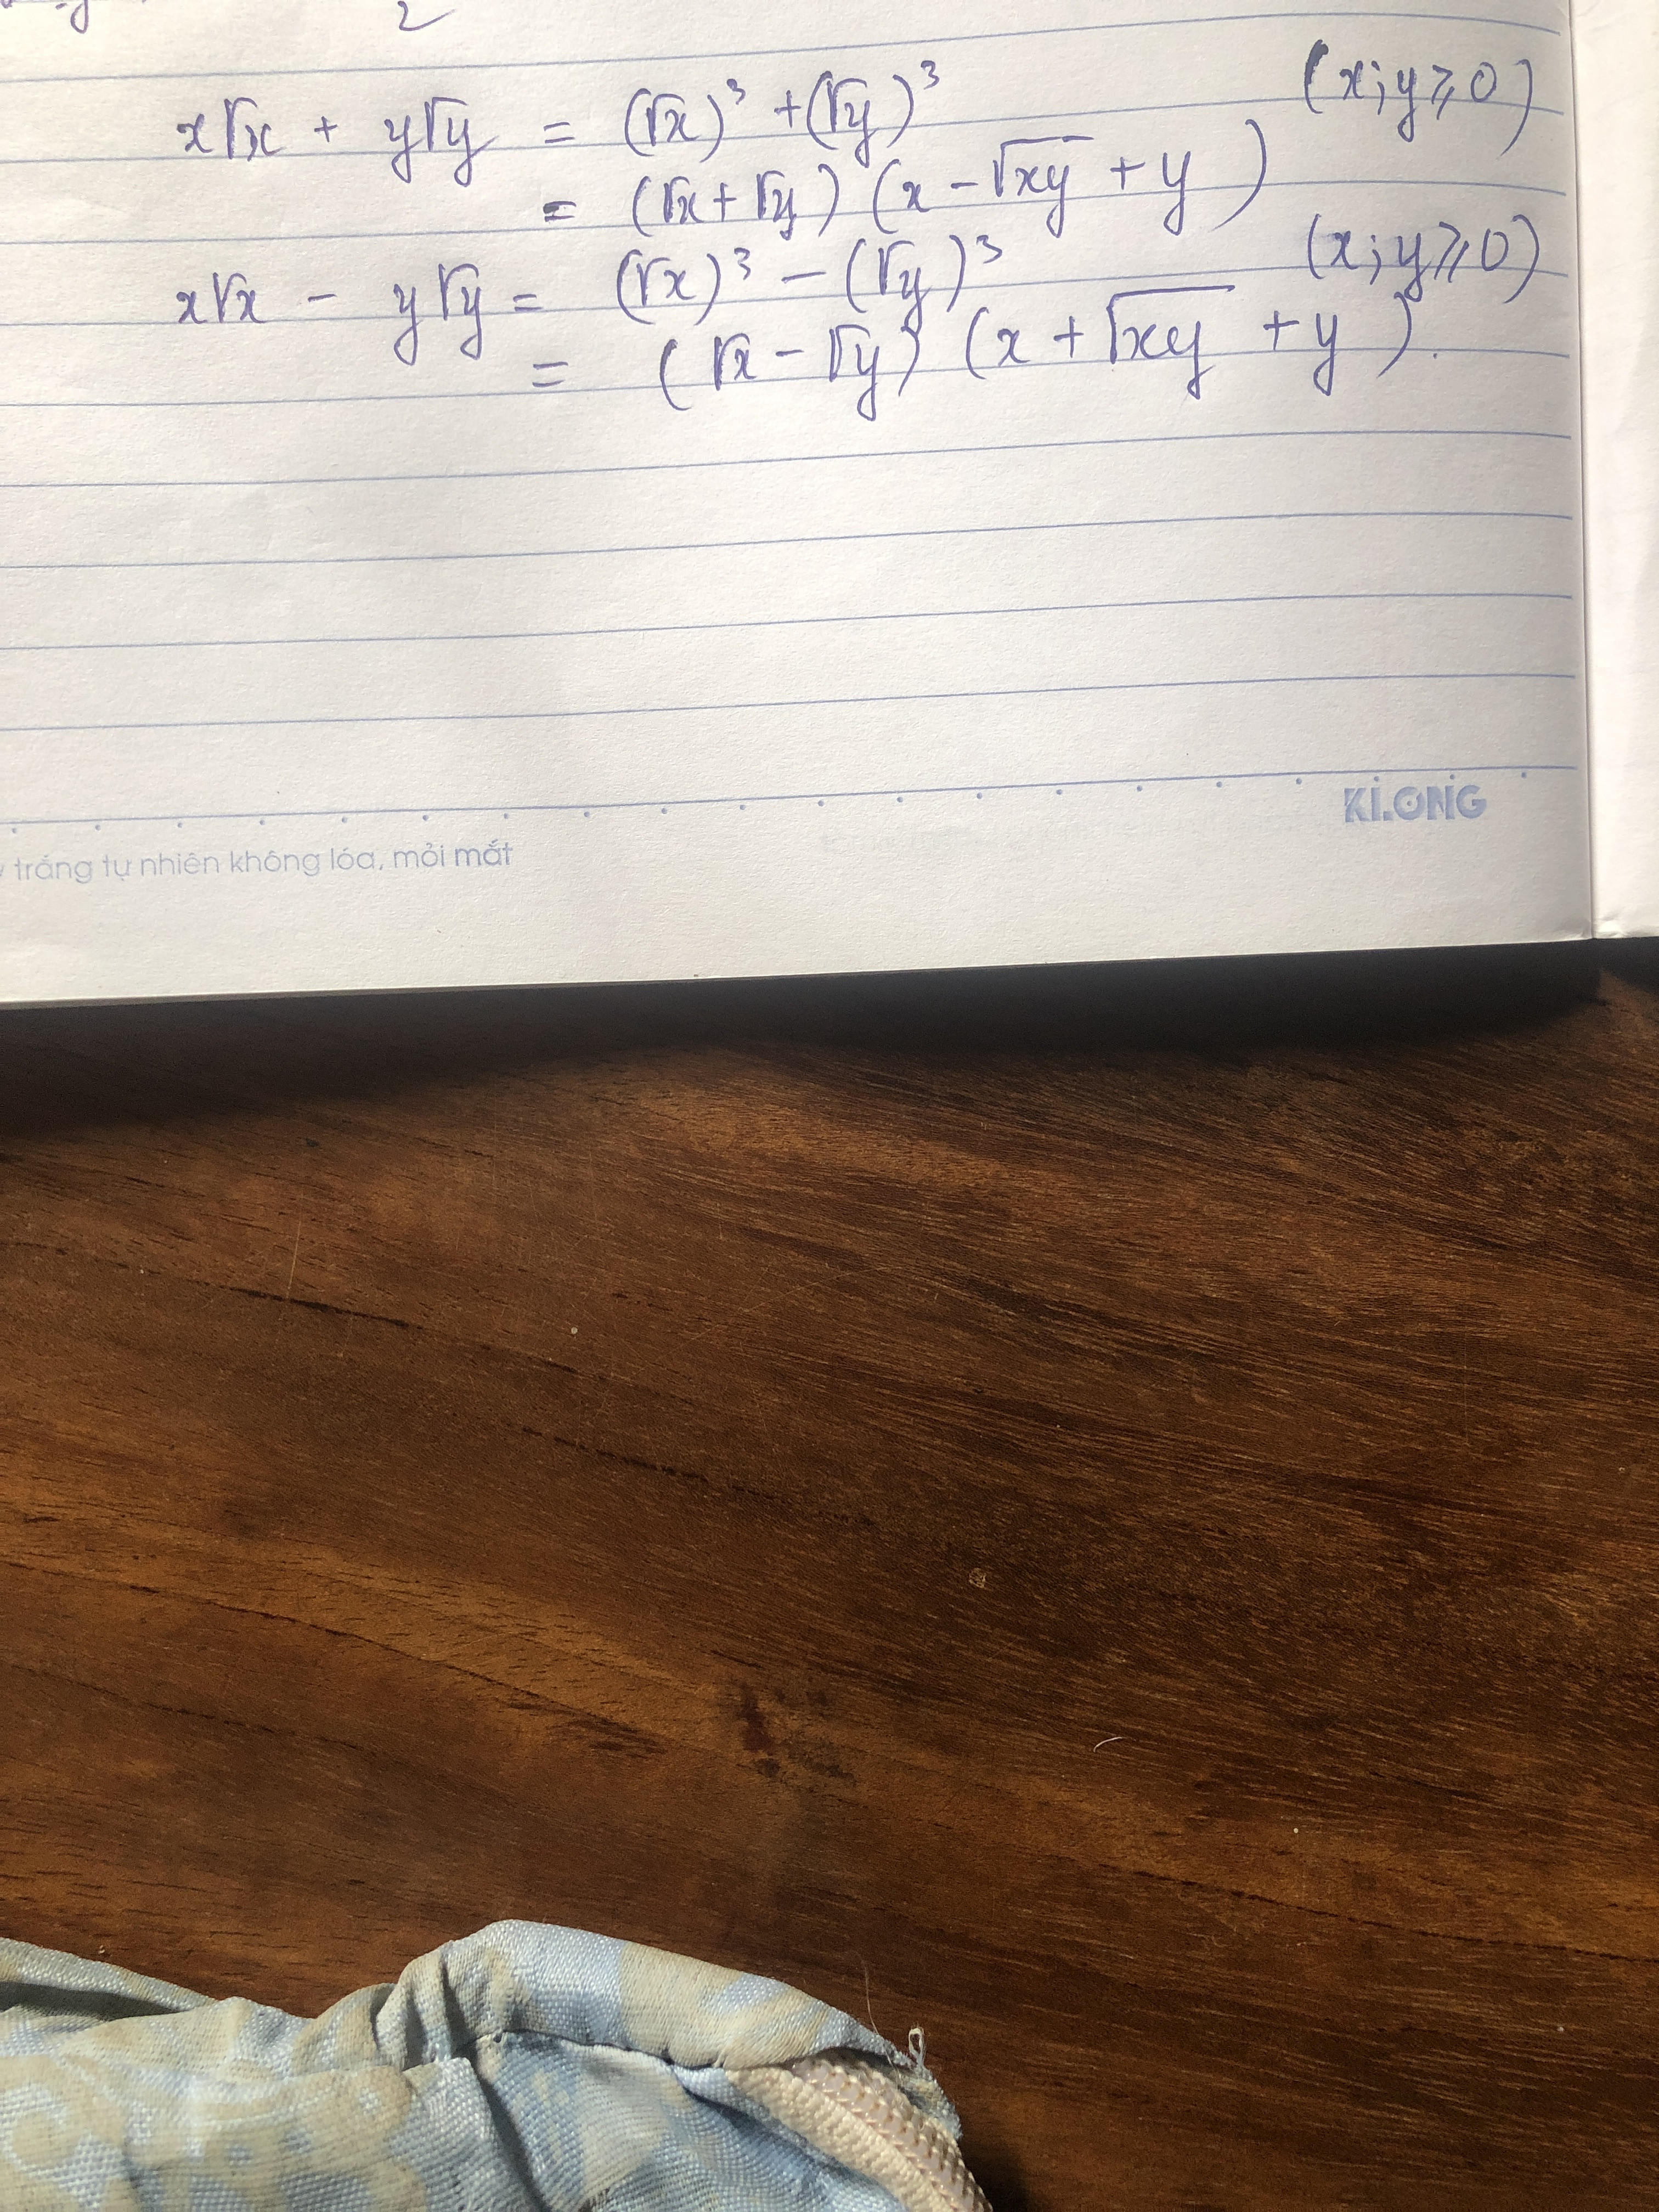 2
x√x + y√y = (√x)³ + (√y)³ (x;y⩾0)
= (√x + √y) (x - √xy + y)
x√x - y√y = (√x)³ - (√y)³ (x;y⩾0)
= (√x - √y) (x + √xy + y).
KLONG
trắng tự nhiên không lóa, mỏi mắt